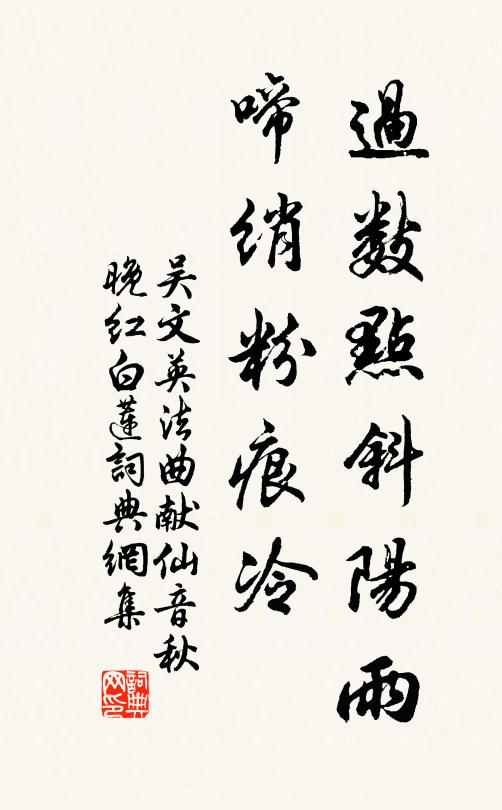 過數點斜陽雨
啼綃粉痕冷
吴文英法曲献仙音秋
晚红白蓮詞典網集
詞典网印